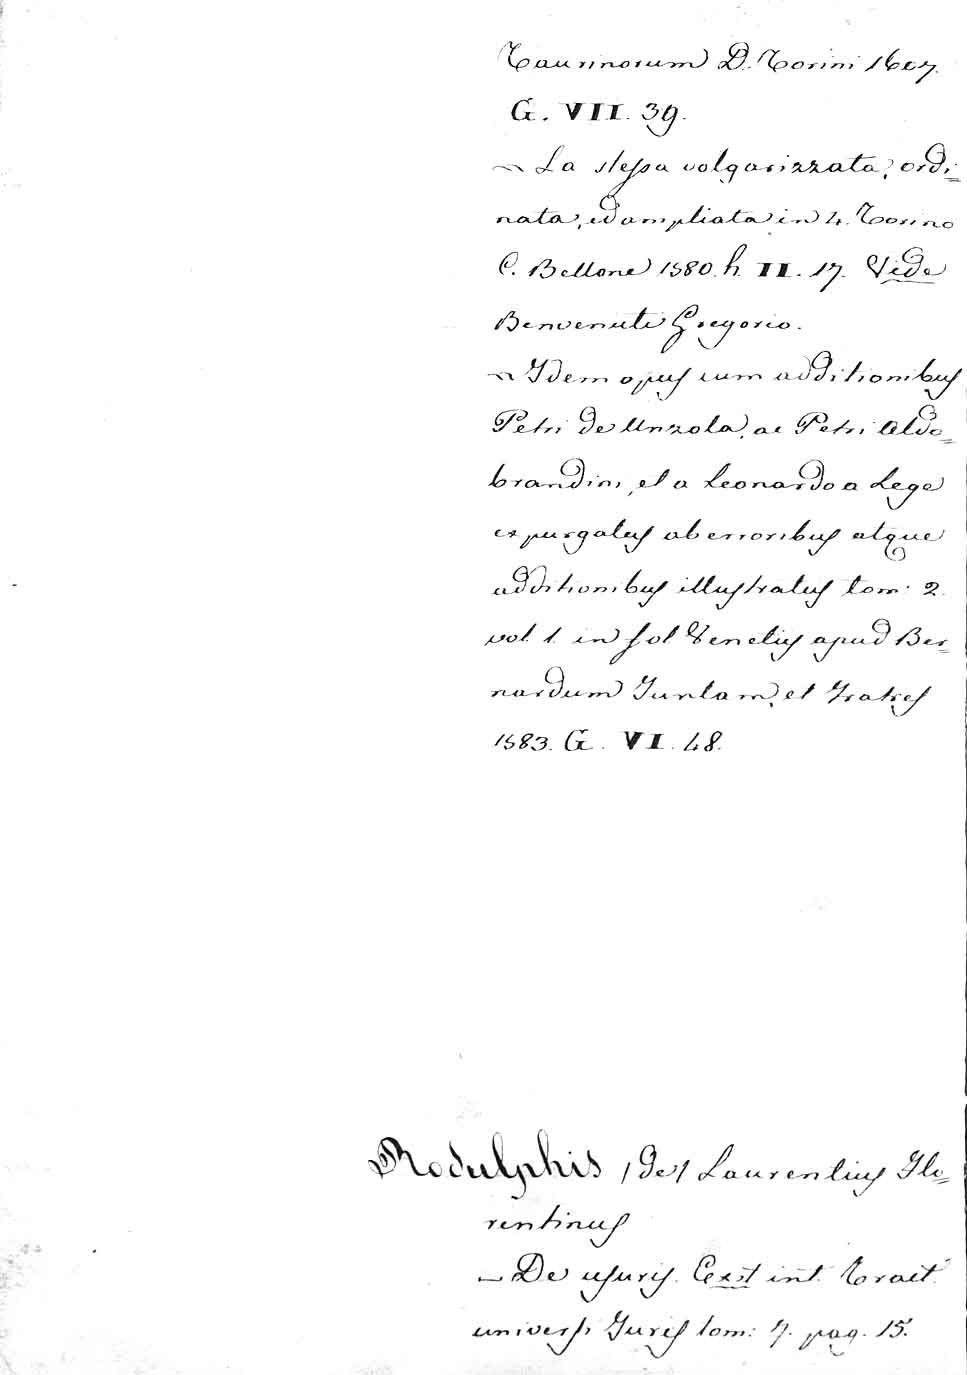 Taurinorum D. Torini 1607.
G. VII. 39.
~ La stessa volgarizzata, ordi=
nata, ed ampliata in 4. Torino
C. Bellone 1580. h. II. 17. Vide
Benvenuti Gregorio.
~ Idem opus cum additionibus
Petri de Unzola, ac Petri Aldo=
brandini, et a Leonardo a Lege
expurgatus ab erroribus atque
additionibus illustratus tom: 2.
vol. 1. in fol Venetiis apud Ber=
nardum Juntam, et Fratres
1583. G. VI. 48.
Rodulphis /de/ Laurentius Flo=
rentinus
— De usuris. Exst int. Tract.
universi Juris tom: 7. pag. 15.